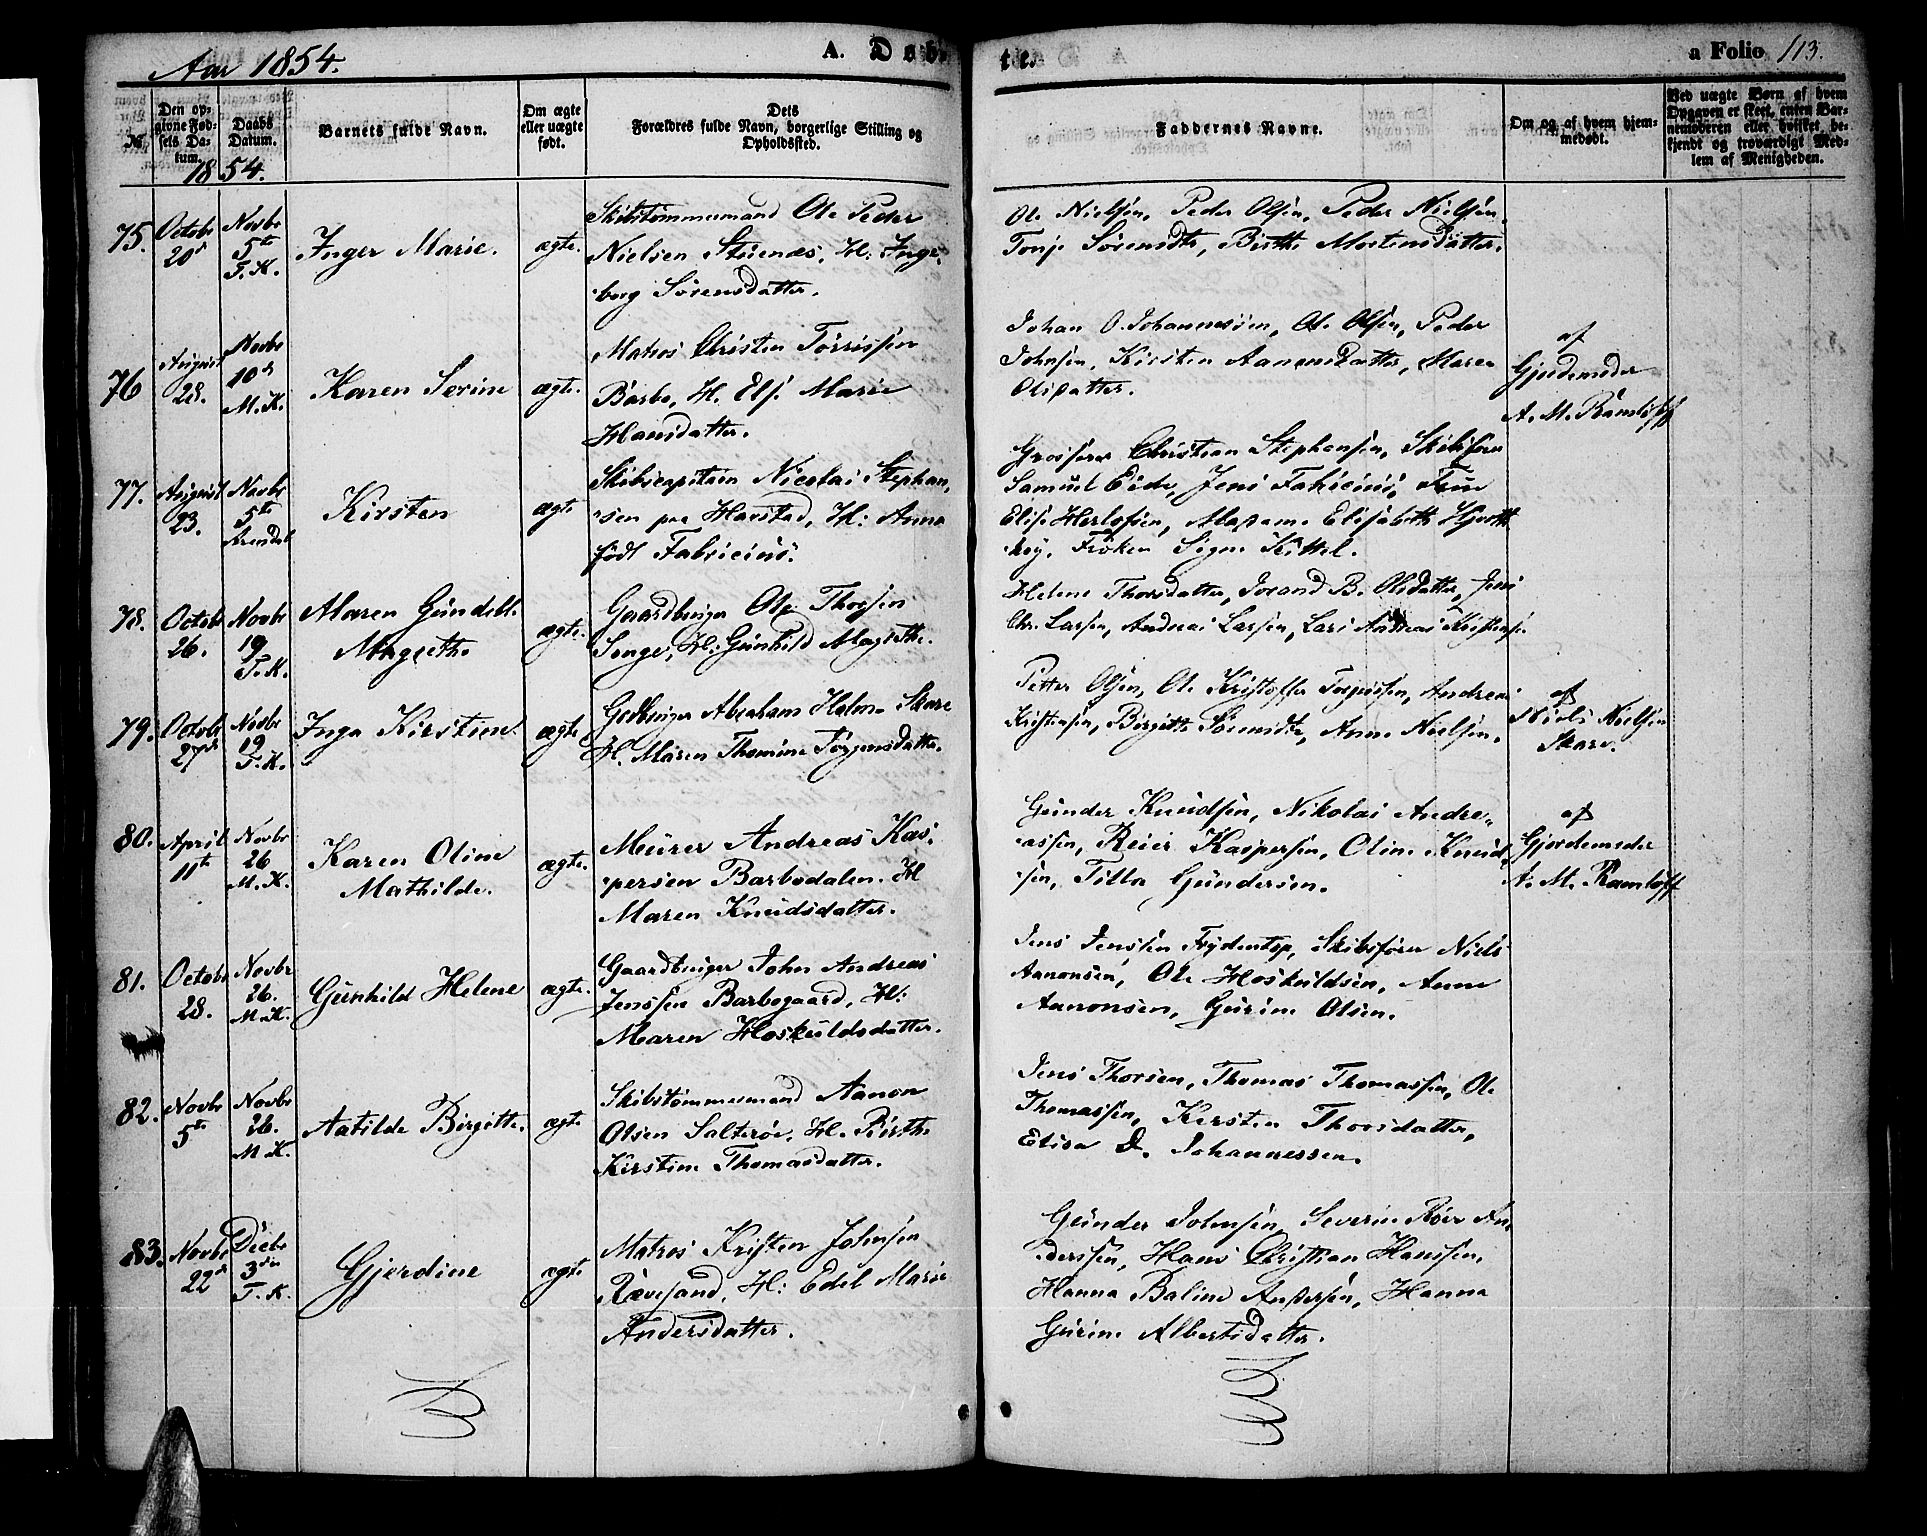 Aar 1854.
A. Døb
te.
a Folio 113.
№
Den opgivne Fødsels Datum.
Daabs Datum.
Barnets fulde Navn.
Om ægte eller uægte født.
Dets Forældres fulde Navn, borgerlige Stilling og Opholdssted.
Faddernes Navne.
Om og af hvem hjemmedøbt.
Ved uægte Børn af hvem Opgaven er skeet, enten Barnemoderen eller hvilket bekjendt og troværdigt Medlem af Menigheden.
1854.
75.
Octobr 20de
Novbr 5te T. K.
Inger Marie.
ægte.
Skibstømmermand Ole Peder
Nielsen Stuenes, H: Inge-
borg Sørensdatter.
Ole Nielsen, Peder Olsen, Peder Nielsen,
Tonje Sørensdtr, Birthe Mortensdatter.
76
August 28.
Novbr 10de M. K.
Karen Serine
ægte.
Matros Christen Tørrissen
Barbo, H. Else Marie
Hansdatter.
Johan O. Johannesøn, Ole Olsen, Peder
Johnsen, Kirsten Aanensdatter, Maren
Olsdatter.
af
Gjordemoder
A. M. Ramløff
77.
August 23.
Novbr 5te Arendal
Kirsten
ægte
Skibscapitain Nicolai Stephan-
sen paa Harstad, H: Anna
født Fabricius.
Grosserer Christian Stephansen, Skibsfører
Samuel Eide, Jens Fabricius, Frue
Elise Herlofsen, Madame Elisabeth
Frøken Signe Kittel.
78.
Octobr 26.
Novbr 19 T. K.
Maren Gundelle
Magrethe
ægte.
Gaardbruger Ole Thorsen
Songe, H: Gunhild Magrethe.
Helene Thorsdatter, Jorand B. Olsdatter, Jens
Chr. Larsen, Andreas Larsen, Lars Andreas Kristensen
79.
Octobr 27de
Novbr 19 T. K.
Inga Kirstine
ægte
Gdbruger Abraham Holm Skare
H. Maren Thomine Jørgensdatter.
Petter Olsen, Ole Kristoffer Torjussen, Andreas
Kristensen, Birgitte Sørensdtr, Anne Nielsen.
af
Niels Nielsen
Skare.
80.
April 11te
Novbr 26 M. K.
Karen Oline
Mathilde.
ægte.
Muurer Andreas Kas-
persen Barbodalen. H
Maren Knudsdatter.
Gunder Knudsen, Nikolai Andre-
assen, Reier Kaspersen, Oline Knud-
sen, Tilla Gundersen.
af
Gjordemoder
A. M. Ramløff
81.
Octobr 28.
Novbr 26. M. K.
Gunhild Helene
ægte.
Gaardbruger John Andreas
Jenssen Barbogaard, H:
Maren Hoskuldsdatter.
Jens Jensen Frydentop, Skibsfører Niels
Aanonsen, Ole Hoskuldsen, Anne
Aanonsen, Gurine Olsen.
82.
Novbr 5te
Novbr 26. M. K.
Aatilde Birgitte.
ægte
Skibstømmermand Aanon
Olsen Salterøe, H. Birthe
Kirstine Thomasdatter.
Jens Thorsen, Thomas Thomassen, Ole
Thomassen, Kirsten Thorsdatter,
Elisa D. Johannessen.
83.
Novbr 22de
Decbr 3die T. K.
Gjerdine
ægte
Matros Kristen Johnsen
Rævesand, H: Edel Marie
Andersdatter.
Gunder Johnsen, Severin Roer An-
derssen, Hans Christian Hanssen,
Hanna Baline Andersen, Hanna
Gurine Albertsdatter.